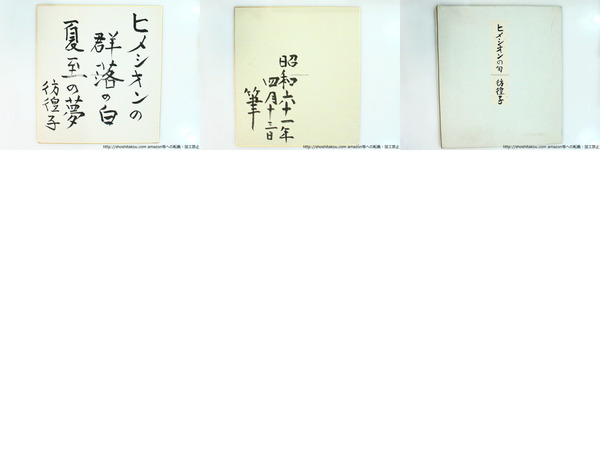 ヒメシオンの
群落の白
夏至の夢
彷徨子
http://shoshitakou.com amazon等への転載・加工禁止
昭和六十一年
四月十三日
筆
http://shoshitakou.com amazon等への転載・加工禁止
ヒメシオンの句 彷徨子
http://shoshitakou.com amazon等への転載・加工禁止